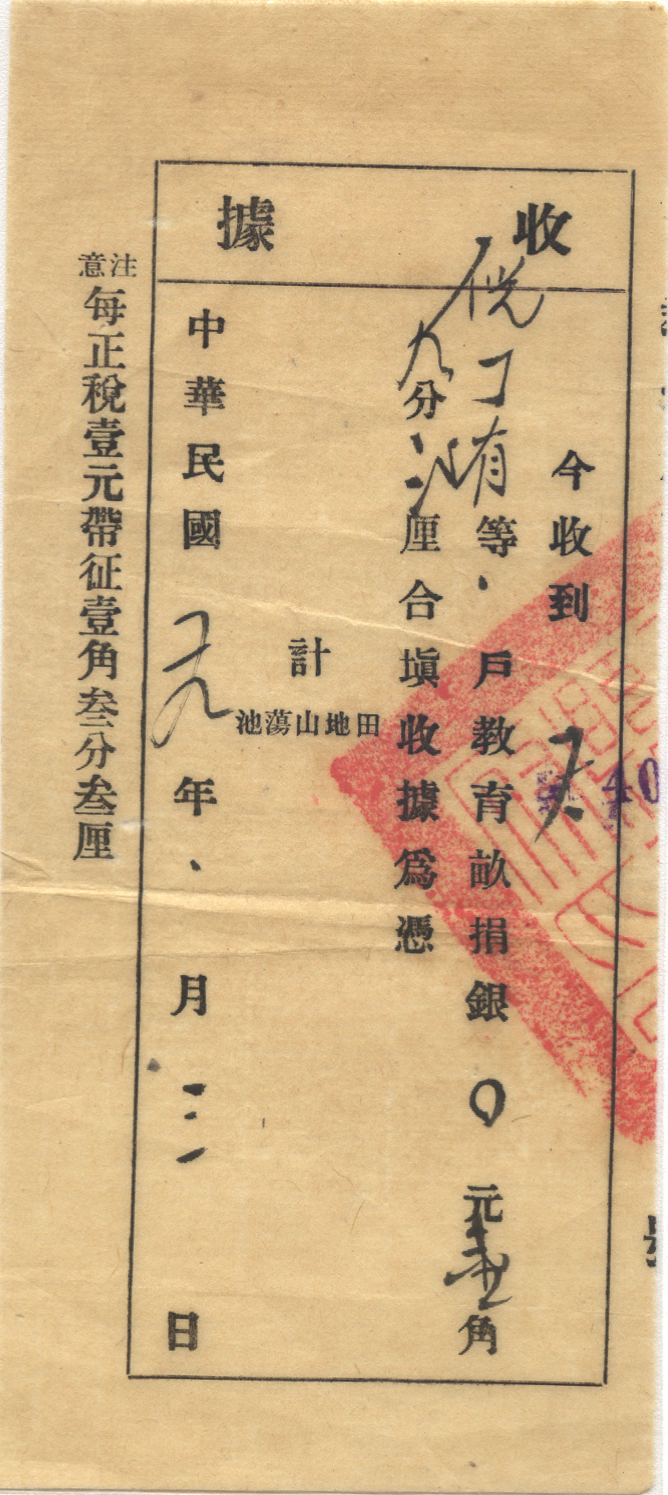 收據
今收到
等戶教育畝捐銀〇元壹角
九分厘合塡收據爲憑
計
田地山蕩池
中華民國元年月三日
注意
每正稅壹元帶征壹角叁分叁厘
40